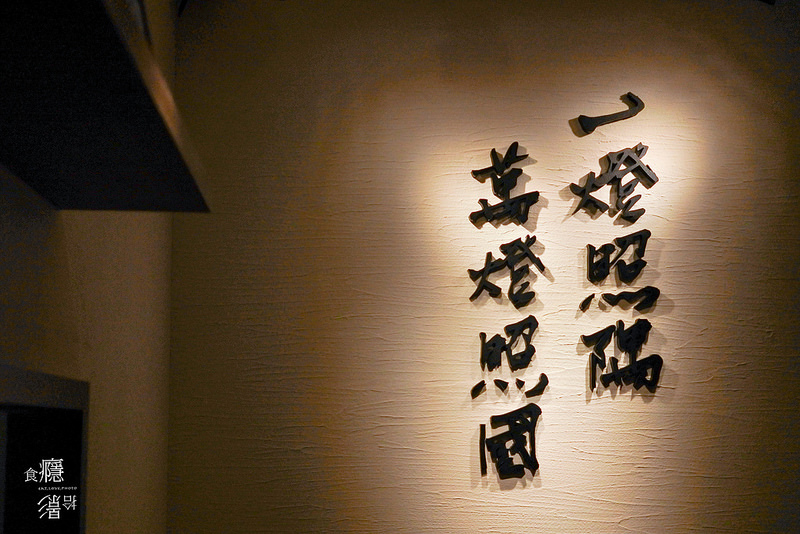 一燈照隅
萬燈照國
食癮
EAT.LOVE.PHOTO
拾影